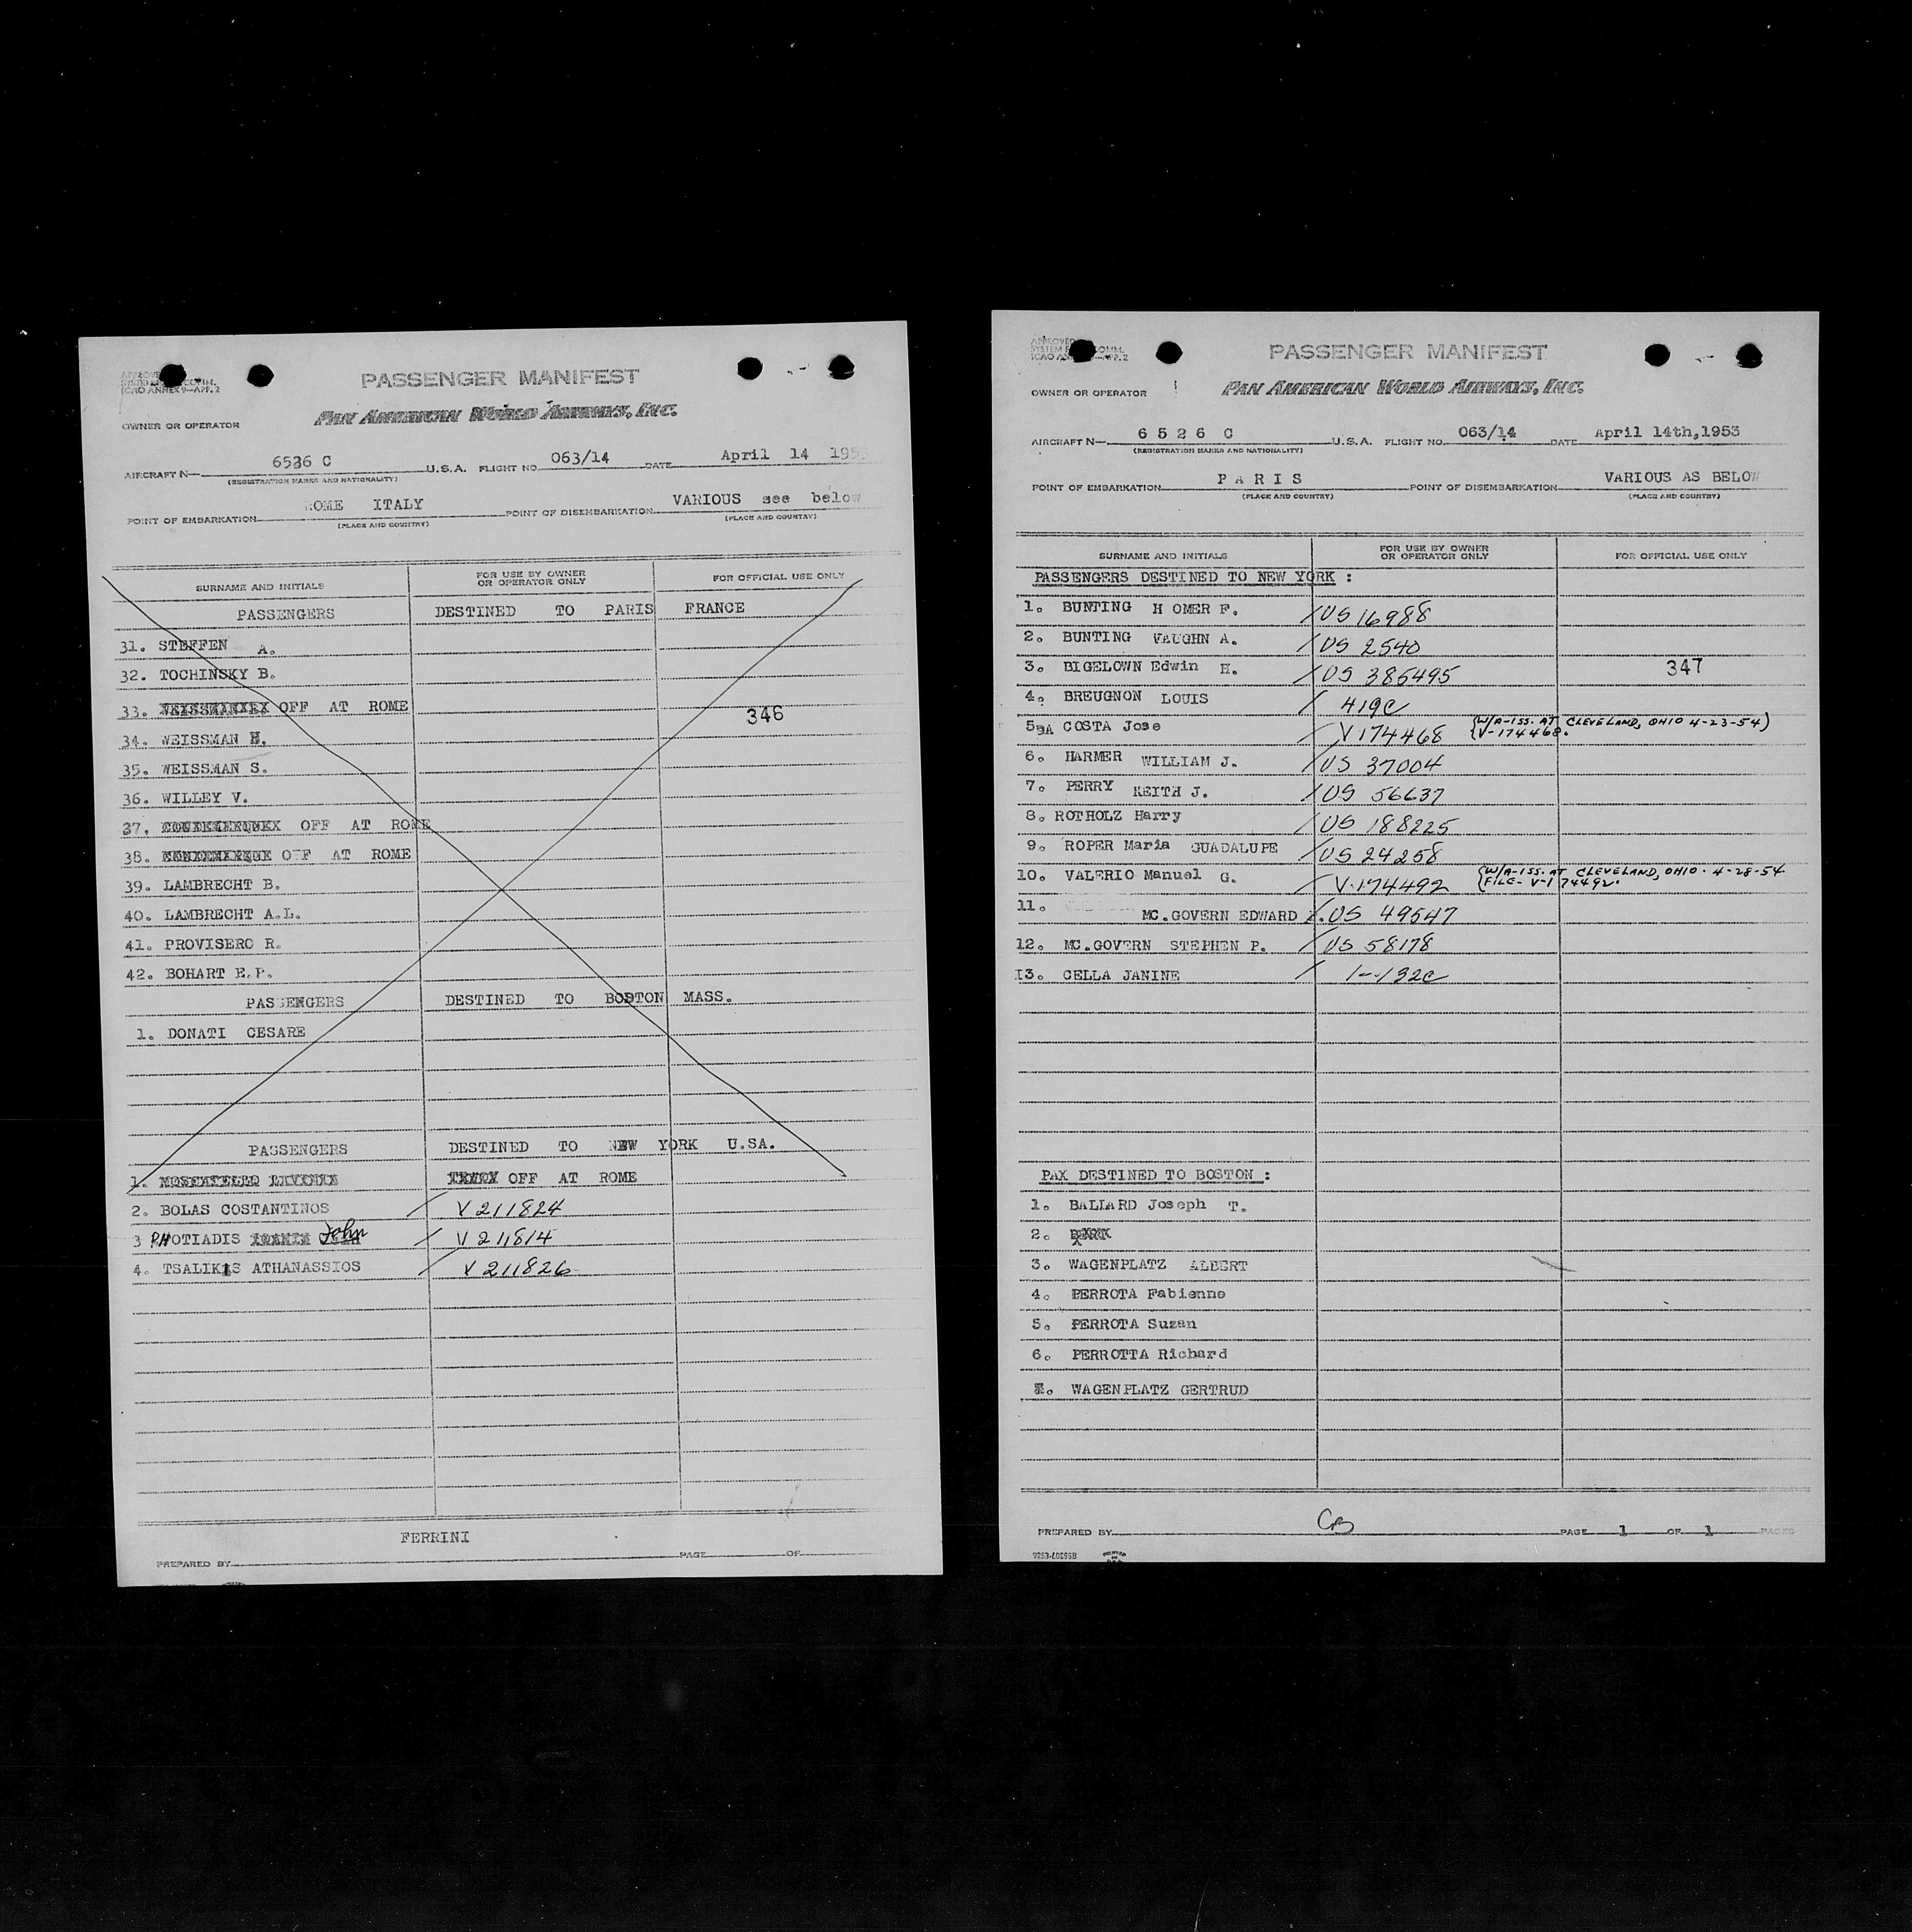 PASSENGER MANIFEST
ICAO ANNEX 9—APP. 2
OWNER OR OPERATOR
PAN AMERICAN WORLD AIRWAYS, INC.
AIRCRAFT N— 6536 C U.S.A. FLIGHT NO. 063/14 DATE April 14 1953
(REGISTRATION MARKS AND NATIONALITY)
POINT OF EMBARKATION ROME ITALY POINT OF DISEMBARKATION VARIOUS see below
(PLACE AND COUNTRY) (PLACE AND COUNTRY)
SURNAME AND INITIALS FOR USE BY OWNER OR OPERATOR ONLY FOR OFFICIAL USE ONLY
PASSENGERS DESTINED TO PARIS FRANCE
31. STEFFEN A.
32. TOCHINSKY B.
33. OFF AT ROME
346
34. WEISSMAN H.
35. WEISSMAN S.
36. WILLEY V.
37. OFF AT ROME
38. OFF AT ROME
39. LAMBRECHT B.
40. LAMBRECHT A.L.
41. PROVISERO R.
42. BOHART E.P.
PASSENGERS DESTINED TO BOSTON MASS.
1. DONATI CESARE
PASSENGERS DESTINED TO NEW YORK U.SA.
1. OFF AT ROME
2. BOLAS COSTANTINOS / V 211824
3 PHOTIADIS John / V 211814
4. TSALIKIS ATHANASSIOS / V 211826
FERRINI
PREPARED BY PAGE OF
APPROVED
SYSTEM F COMM.
ICAO AN —APP. 2
PASSENGER MANIFEST
OWNER OR OPERATOR PAN AMERICAN WORLD AIRWAYS, INC.
AIRCRAFT N— 6 5 2 6 C U.S.A. FLIGHT NO. 063/14 DATE April 14th,1953
(REGISTRATION MARKS AND NATIONALITY)
POINT OF EMBARKATION P A R I S POINT OF DISEMBARKATION VARIOUS AS BELOW
(PLACE AND COUNTRY) (PLACE AND COUNTRY)
SURNAME AND INITIALS FOR USE BY OWNER OR OPERATOR ONLY FOR OFFICIAL USE ONLY
PASSENGERS DESTINED TO NEW YORK :
1. BUNTING H OMER F. / US 16988
2. BUNTING VAUGHN A. / US 2540
3. BIGELOWN Edwin H. / US 385495 347
4. BREUGNON LOUIS / 419C
5. BA COSTA Jose / V 174468 (W/A-ISS. AT CLEVELAND, OHIO 4-23-54)
(V-174468.
6. HARMER WILLIAM J. / US 37004
7. PERRY KEITH J. / US 56637
8. ROTHOLZ Harry / US 188225
9. ROPER Maria GUADALUPE / US 24258
10. VALERIO Manuel G. / V-174492 (W/A-ISS. AT CLEVELAND, OHIO. 4-28-54
(FILE- V-174492.
11. MC.GOVERN EDWARD /. US 49547
12. MC.GOVERN STEPHEN P. / US 58178
13. CELLA JANINE / 1--132C
PAX DESTINED TO BOSTON :
1. BALLARD Joseph T.
2.
3. WAGENPLATZ ALBERT
4. PERROTA Fabienne
5. PERROTA Suzan
6. PERROTTA Richard
WAGENPLATZ GERTRUD
PREPARED BY CB PAGE 1 OF 1 PAGES